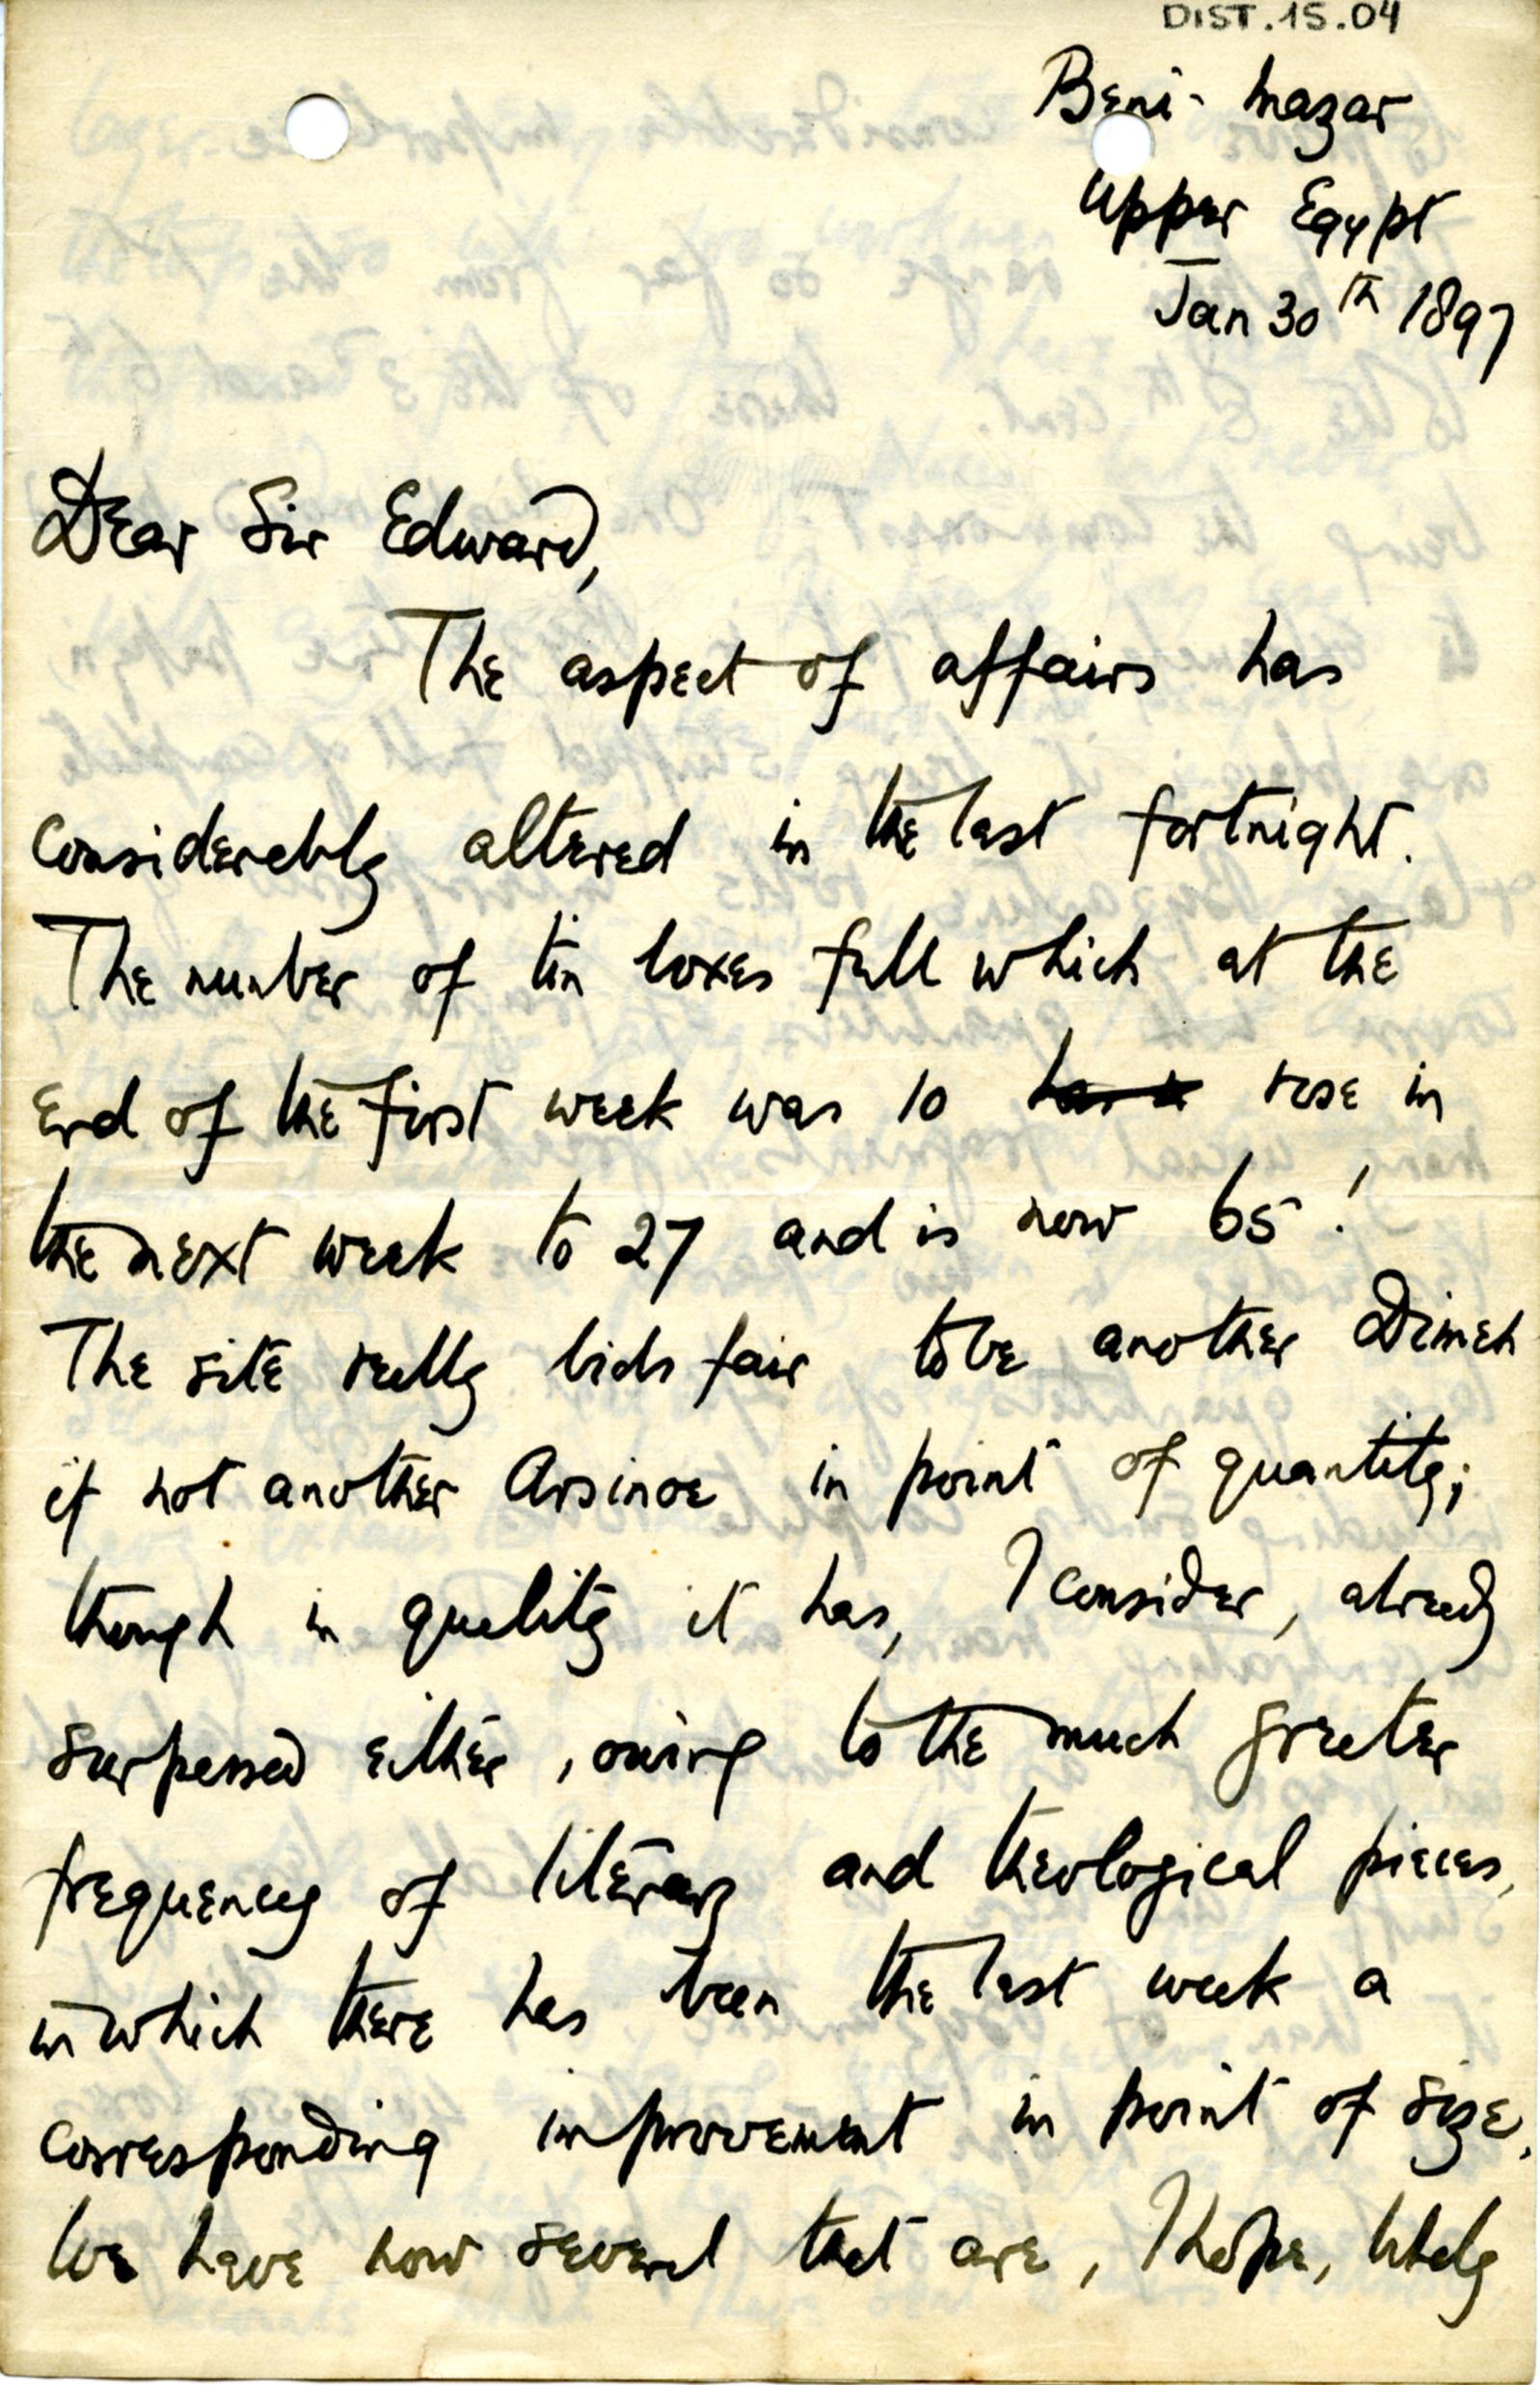 DIST.15.04
Beni-Mazar
Upper Egypt
Jan 30th 1897
Dear Sir Edward,
The aspect of affairs has
considerably altered in the last fortnight.
The number of tin boxes full which at the
end of the first week was 10 has a rose in
the next week to 27 and is now 65!
The site really bids fair to be another Dimeh
if not another Arsinoe in point of quantity;
though in quality it has, I consider, already
surpassed either, owing to the much greater
frequency of literary and theological pieces,
in which there has been the last week a
corresponding improvement in point of size.
We have now several that are, I hope, likely